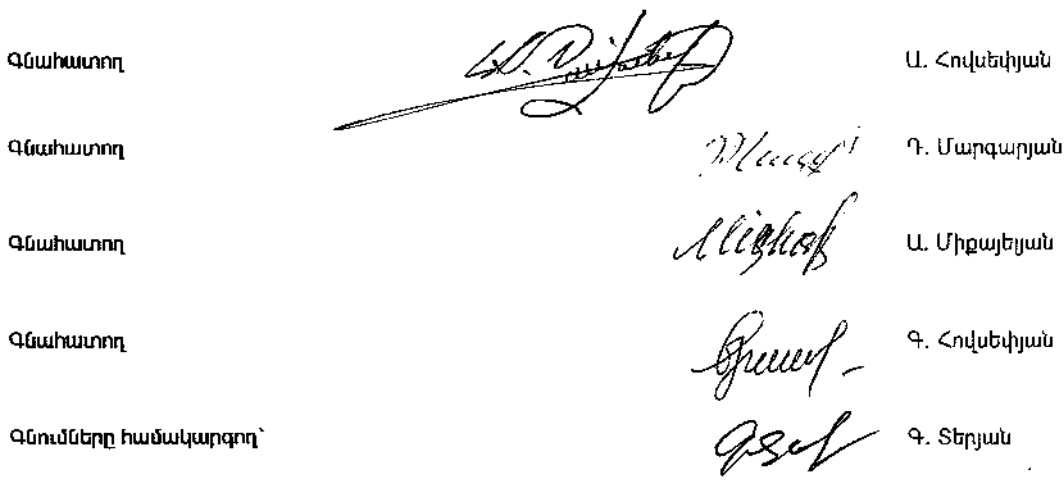 Գնահատող Ա. Հովսեփյան
Գնահատող Դ. Մարգարյան
Գնահատող Ա. Միքայելյան
Գնահատող Գ. Հովսեփյան
Գնումները համակարգող՝ Գ. Տերյան